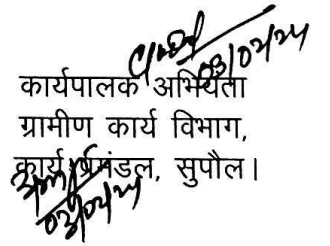 03/02/24
कार्यपालक अभियंता
ग्रामीण कार्य विभाग,
कार्य प्रमंडल, सुपौल।